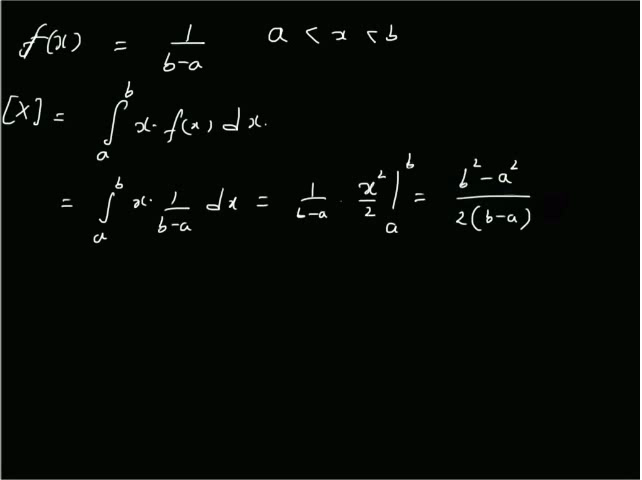 f(x) = 1/(b-a) a < x < b
[X] = ∫_a^b x. f(x) dx.
= ∫_a^b x. 1/(b-a) dx = 1/(b-a) . x²/2 |_a^b = (b²-a²)/(2(b-a))